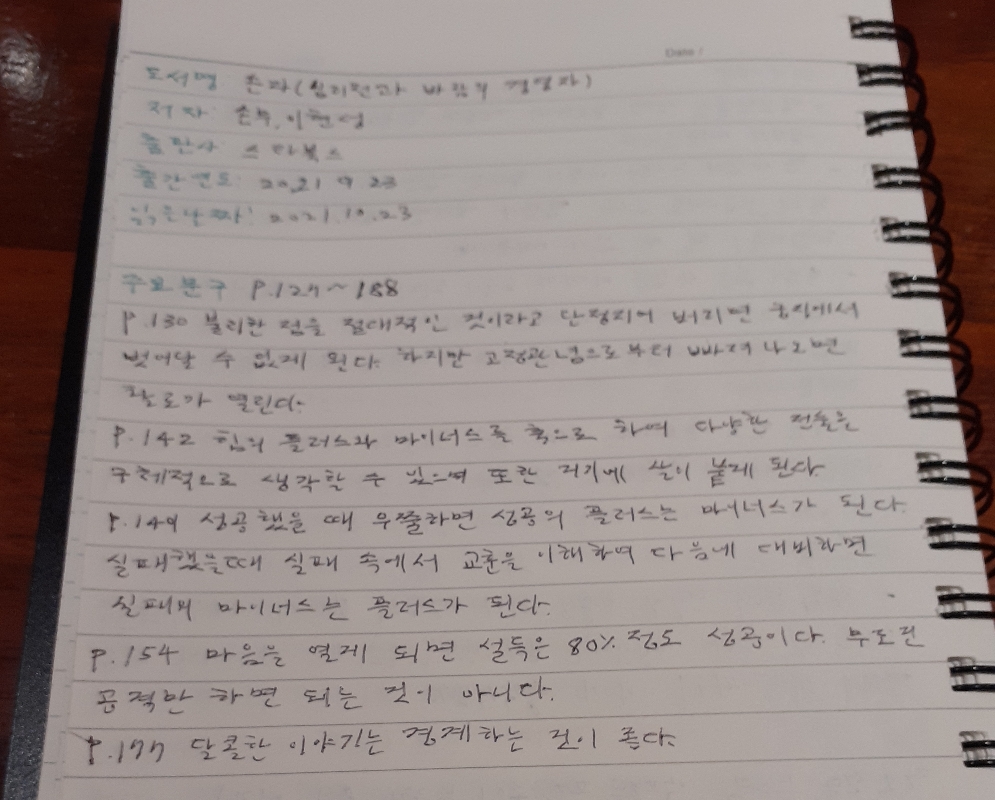 Date /
도서명 손자(심리전과 바람의 경영자)
저자 손무, 이현성
출판사 스타북스
출간연도 2021 9 23
읽은날짜! 2021.10.23
주요문구 P.127~188
P.130 불리한 점을 절대적인 것이라고 단정지어 버리면 궁지에서
벗어날 수 없게 된다. 하지만 고정관념으로부터 빠져나오면
활로가 열린다.
P.142 힘의 플러스와 마이너스를 축으로 하여 다양한 전술을
구체적으로 생각할 수 있으며 또한 거기에 살이 붙게 된다.
P.149 성공했을 때 우쭐하면 성공의 플러스는 마이너스가 된다.
실패했을때 실패 속에서 교훈을 이해하여 다음에 대비하면
실패의 마이너스는 플러스가 된다.
P.154 마음을 열게 되면 설득은 80% 정도 성공이다. 무조건
공격만 하면 되는 것이 아니다.
P.177 달콤한 이야기는 경계하는 것이 좋다.